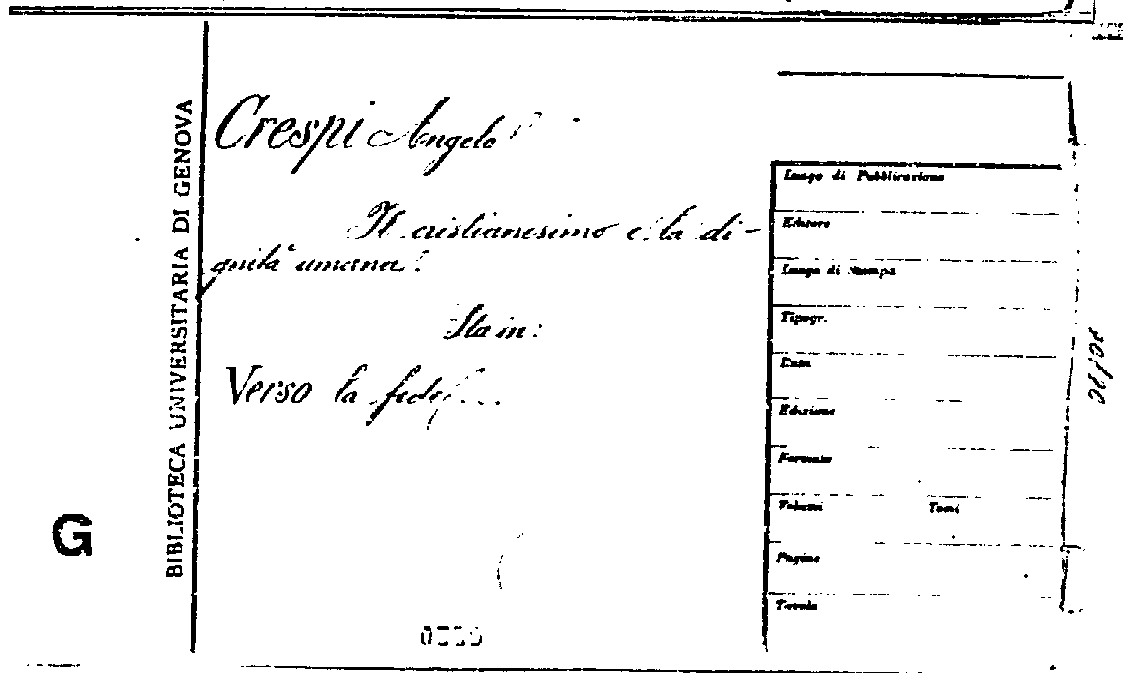 BIBLIOTECA UNIVERSITARIA DI GENOVA
G
Crespi Angelo
Il cristianesimo e la di-
gnità umana.
Sta in:
Verso la fede
Luogo di Pubblicazione
Editore
Luogo di stampa
Tipogr.
Data
Edizione
Formato
Volumi Tomi
Pagine
Tavole